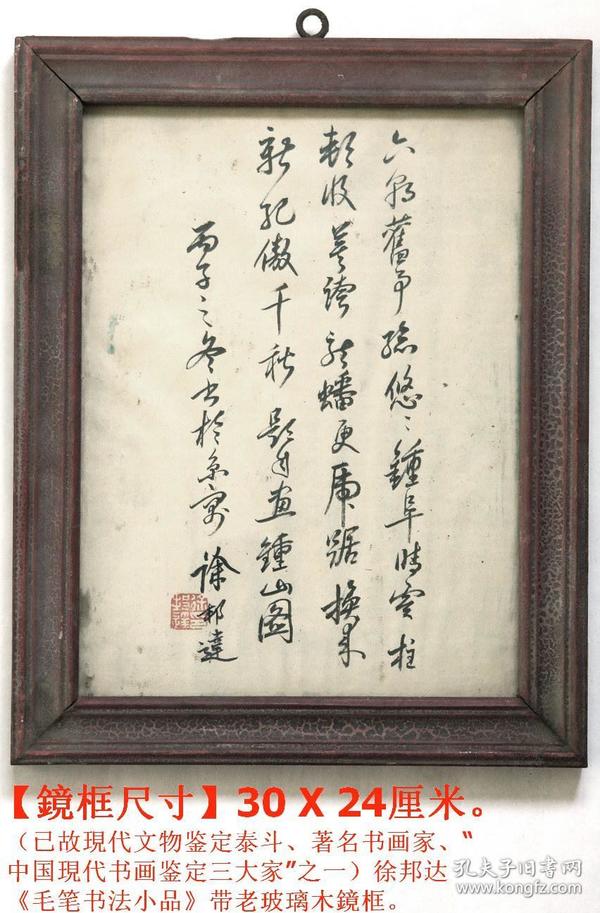 六朝舊事總悠〻鍾阜時雲柱
頰收莫誇龍蟠更虎踞換來
新紀傲千秋 題自畫鍾山圖
丙子之冬書於京寓 徐邦達
【鏡框尺寸】30 X 24厘米。
（已故現代文物鉴定泰斗、著名书画家、“
中国現代书画鉴定三大家”之一）徐邦达
《毛笔书法小品》带老玻璃木鏡框。
孔夫子旧书网
www.kongfz.com